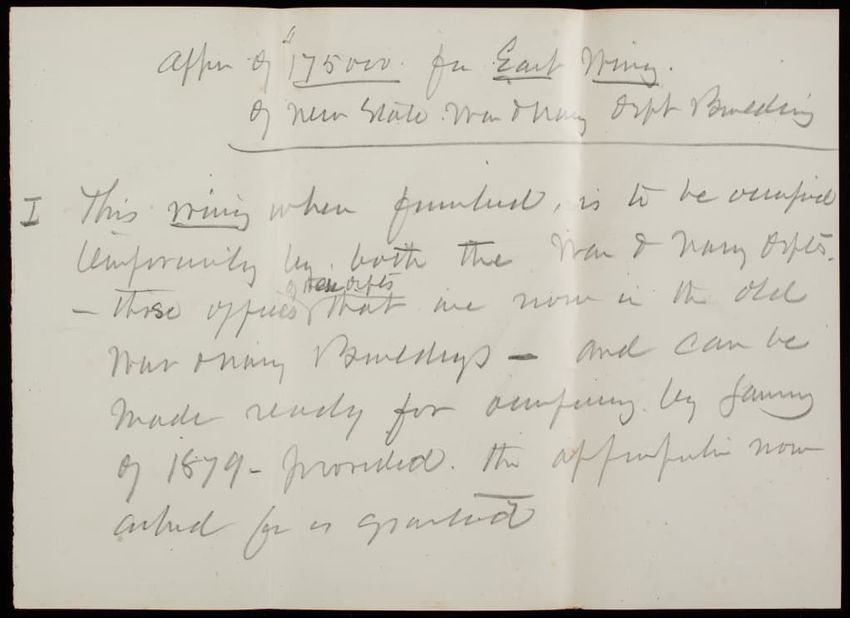 Appn of "175000. for East Wing.
of new State War & Navy Dept Building
I This wing when finished, is to be occupied
temporarily by both the War & Navy Depts.
of these depts
– those offices that are now in the old
War & Navy Buildings – and can be
made ready for occupancy by January
of 1879 – provided the appropriation now
asked for is granted